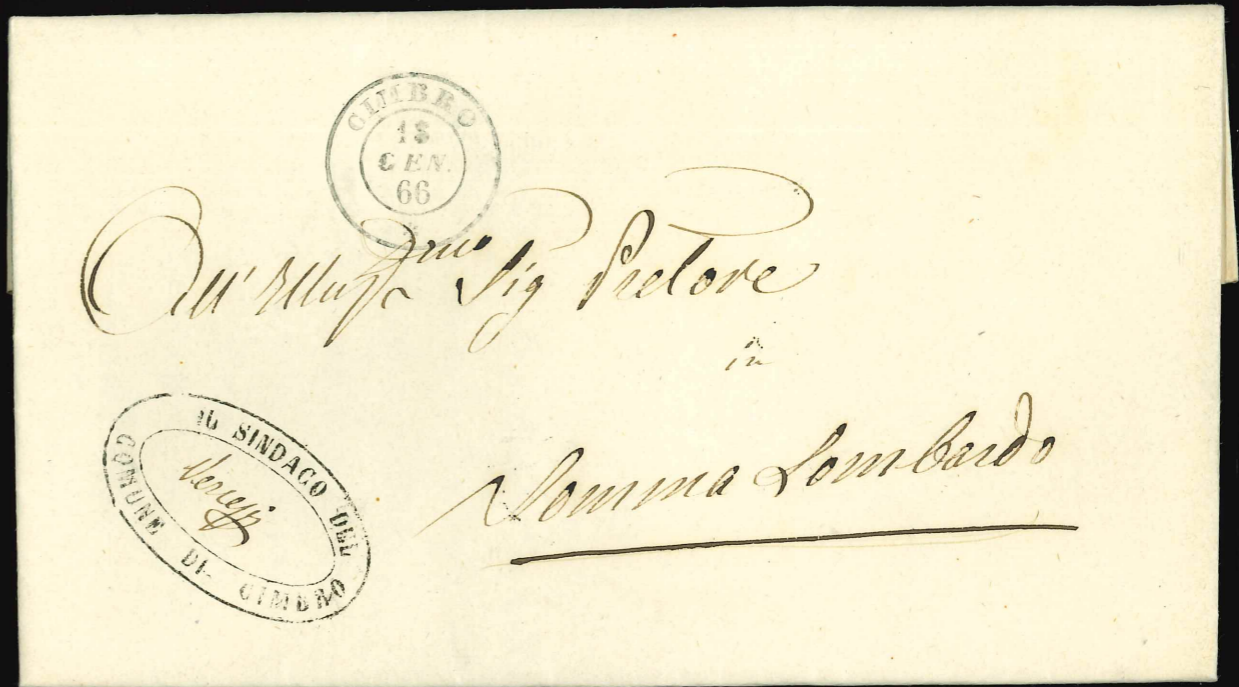 CIMBRO
13
GEN.
66
All' Illus.mo Sig Pretore
in
Somma Lombardo
IL SINDACO DEL
COMUNE DI CIMBRO